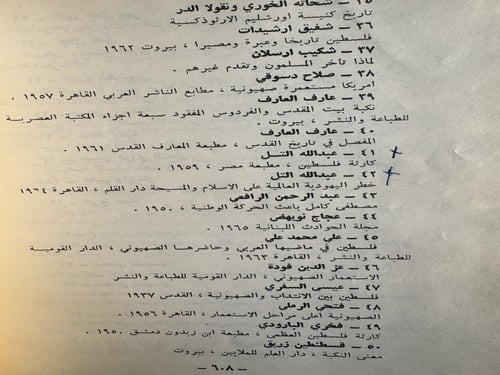 ٣٥ ـ شحاته الخوري ونقولا الدر
تاريخ كنيسة اورشليم الارثوذكسية
٣٦ ـ شفيق ارشيدات
فلسطين تاريخا وعبرة ومصيرا ، بيروت ١٩٦٢
٣٧ ـ شكيب ارسلان
لماذا تأخر المسلمون وتقدم غيرهم .
٣٨ ـ صلاح دسوقي
امريكا مستعمرة صهيونية ، مطابع الناشر العربي القاهرة ١٩٥٧ .
٣٩ ـ عارف العارف
نكبة بيت المقدس والفردوس المفقود سبعة اجزاء المكتبة العصرية
للطباعة والنشر ، بيروت .
٤٠ ـ عارف العارف
المفصل في تاريخ القدس ، مطبعة المعارف القدس ١٩٦١ .
٤١ ـ عبدالله التل
كارثة فلسطين ، مطبعة مصر ، ١٩٥٩ .
٤٢ ـ عبدالله التل
خطر اليهودية العالمية على الاسلام والمسيحة دار القلم ، القاهرة ١٩٦٤
٤٣ ـ عبد الرحمن الرافعي
مصطفى كامل باعث الحركة الوطنية ، ١٩٥٠ .
٤٤ ـ عجاج نويهض
مجلة الحوادث اللبنانية ١٩٦٥ .
٤٥ ـ علي محمد علي
فلسطين في ماضيها العربي وحاضرها الصهيوني ، الدار القومية
للطباعة والنشر ، القاهرة ١٩٦٣ .
٤٦ ـ عز الدين فودة
الاستعمار الصهيوني ، الدار القومية للطباعة والنشر
٤٧ ـ عيسى السفري
فلسطين بين الانتداب والصهيونية ، القدس ١٩٣٧
٤٨ ـ فتحي الرملي
الصهيونية اعلى مراحل الاستعمار ، القاهرة ١٩٥٦ .
٤٩ ـ فخري البارودي
كارثة فلسطين العظمى ، مطبعة ابن زيدون دمشق ١٩٥٠ .
٥٠ ـ قسطنطين زريق
معنى النكبة ، دار العلم للملايين ، بيروت
ـ ٦٠٨ ـ